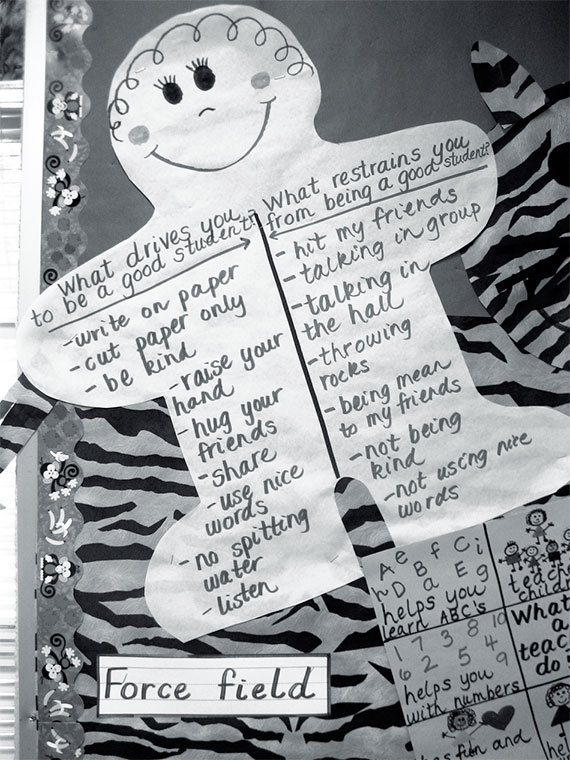 What drives you
to be a good student?
- write on paper
- cut paper only
- be kind
- raise your
hand
- hug your
friends
- share
- use nice
words
- no spitting
water
- listen
What restrains you
from being a good student?
- hit my friends
- talking in group
- talking in
the hall
- throwing
rocks
- being mean
to my friends
- not being
kind
- not using nice
words
Force field
A e B f C i
D a E g
helps you
learn ABC's
1 7 3 8 10
6 2 5 4 9
helps you
with numbers
has fun and
What
a
do